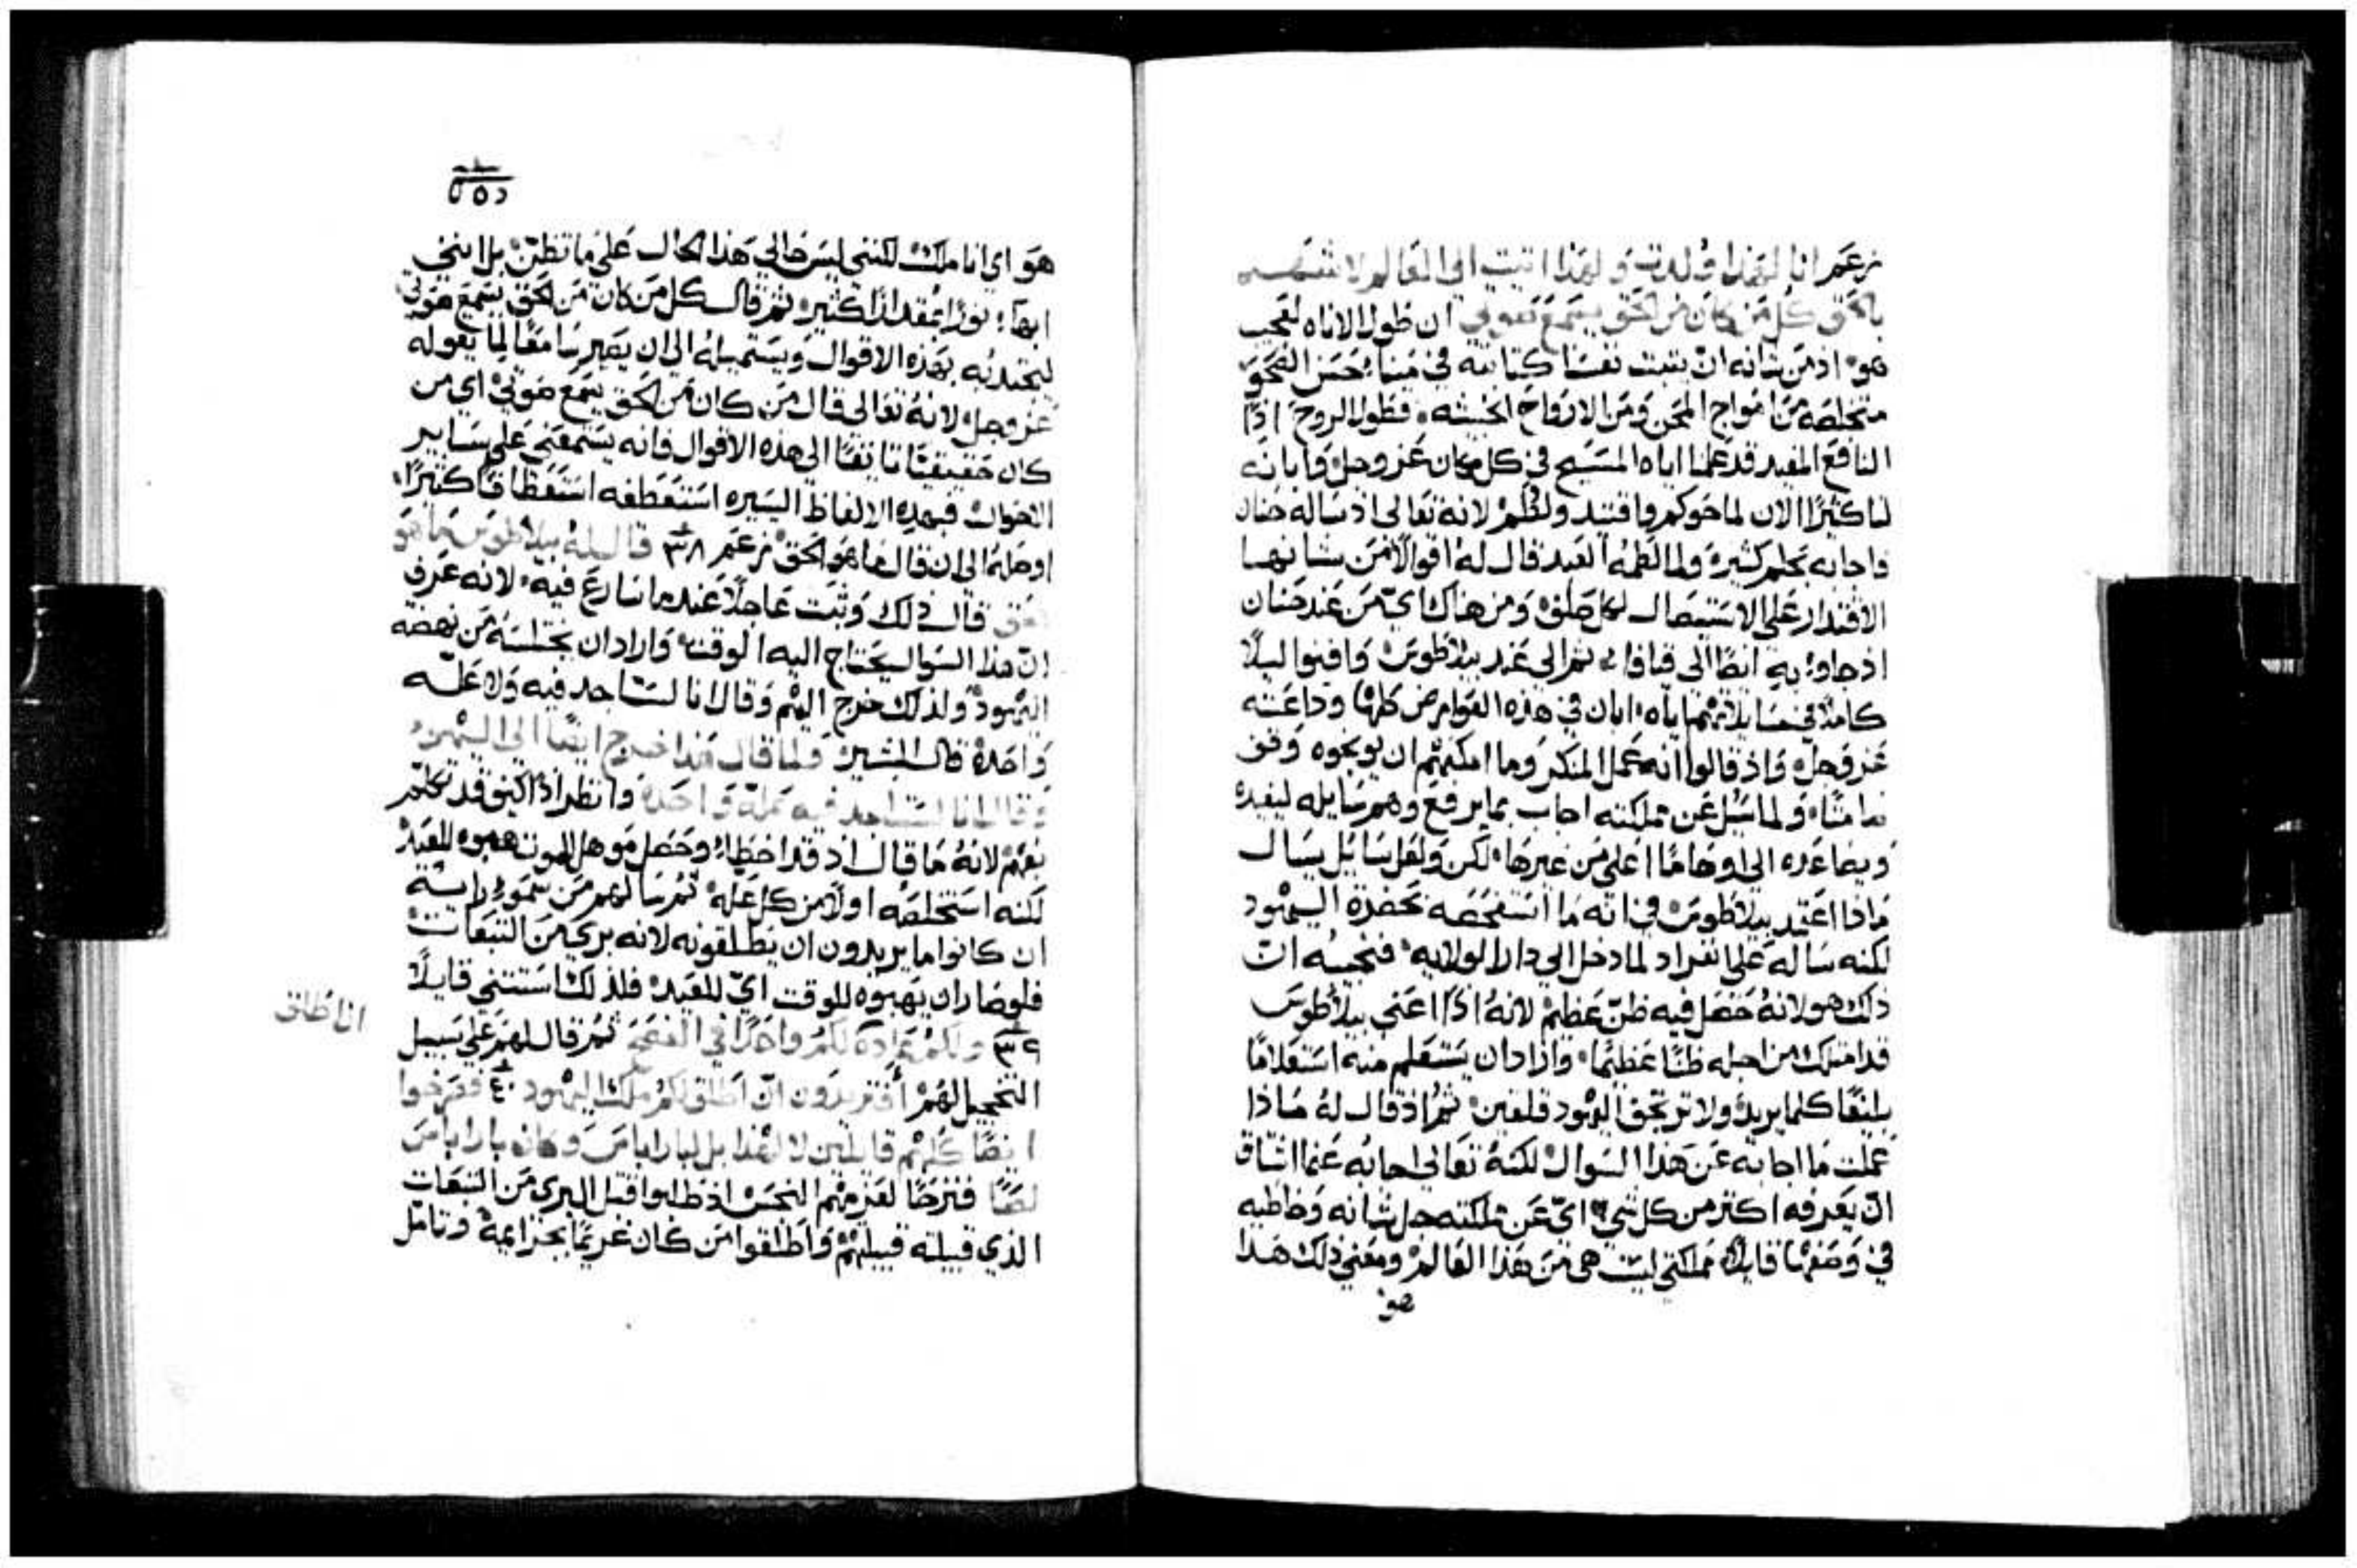 زعم انا لهذا ولدت ولهذا اتيت الى العالم لاشهد
بالحق كل من كان من الحق يسمع صوتي ان طول الاناه لعجيب
هو اذ من شانه ان يثبت نفسًا كتابته في مينا حسن الصحو
متخلصه من امواج المحن ومن الارواح الخبيثه فطول الروح اذًا
النافع المفيد قد علمنا اياه المسيح في كل مكان عز وجل وابانه
لنا كثيرًا الان لما حوكم واقتيد ولطم لانه تعالى اذ ساله حنان
فاجابه بحلم كثير ولما لطمه العبد قال له اقوالًا من شانها
الاقتدار على الاستيصال لكل صلف ومن هناك اي من عند حنان
اذ جاوا به ايضًا الى قيافا ثم الى عند بيلاطوس وافنوا ليلًا
كاملًا في مسايلاتهم اياه ابان في هذه العوارض كلها وداعته
عز وجل واذ قالوا انه عمل المنكر وما امكنهم ان يوبخوه وقف
صامتًا ولما سيل عن مملكته اجاب بما يرفع وهم سايله ليفيده
ويصاعده الى اوهامًا اعلى من غيرها لكن ولعل سايل يسال
ماذا اعتمد بيلاطوس في انه ما استفحصه بحضرة اليهود
لكنه ساله على انفراد لما دخل الى دار الولايه فنجيبه ان
ذلك هو لانه حصل فيه ظن عظيم لانه اذًا اعني بيلاطوس
قد امتلك من اجله ظنًا عظيمًا وارادان يستعلم منه استعلامًا
بليغًا كلما يريد ولا ترتجف اليهود قلقين ثم اذ قال له ماذا
عملت ما اجابه عن هذا السوال لكنه تعالى اجابه عما اشتاق
ان يعرفه اكثر من كل شي اي عن مملكته جل شانه وخاطبه
في وصفها قايلًا مملكتي ليست هي من هذا العالم ومعنى ذلك هذا
هو
هو اي انا ملك لكنني ليس حالي هذا الحال على ما تظن بل انني
ابها نورًا بمقدار كثير ثم قال كل من كان من الحق يسمع صوتي
ليجتذبه بهذه الاقوال ويستميله الى ان يصير سامعًا لما يقوله
عز وجل لانه تعالى قال من كان من الحق يسمع صوتي اي من
كان حقيقيًا تايقًا الى هذه الاقوال فانه يستمعني على ساير
الاخوات فبهذه الالفاظ اليسيره استعطفه استعطافًا كثيرًا
اوصله الى ان قال ما هو الحق زعم ٣٨ قال له بيلاطوس ما هو
الحق قال ذلك وثبت عاجلًا عند ما سارع فيه لانه عرف
ان هذا السوال يحتاج اليه الوقت وارادان يختلسه من نهضه
اليهود ولذلك خرج اليهم وقال انا لست اجد فيه ولا علّه
واحدة قال البشير ولما قال هذا خرج ايضًا الى اليهود
وقال انا لست اجد فيه علة واحده وانظر اذًا كيف قد تكلم
بفهم لانه ما قال اذ قد اخطا وحصل موهل للموت هبوه للعيد
لكنه استخلصه اولًا من كل عله ثم سالهم من سمو راسه
ان كانوا ما يريدون ان يطلقونه لانه بري من التبعات
فلو صار ان يهبوه للوقت اي للعيد فلذلك استثنى قايلًا
٣٩ ولكم عادة لكم واحدًا في الفصح ثم قال لهم على سبيل
انا اطلق
التخجيل لهم أفتريدون ان اطلق لكم ملك اليهود ٤٠ فصرخوا
ايضًا كلهم قايلين لا لهذا بل لباراباس وكان بارابأس
لصًا فنزحًا لعزمهم النجس اذ طلبوا قتل البري من التبعات
الذي قبيلته قبيلتهم واطلقوا من كان غريمًا بجرايمه وتامل